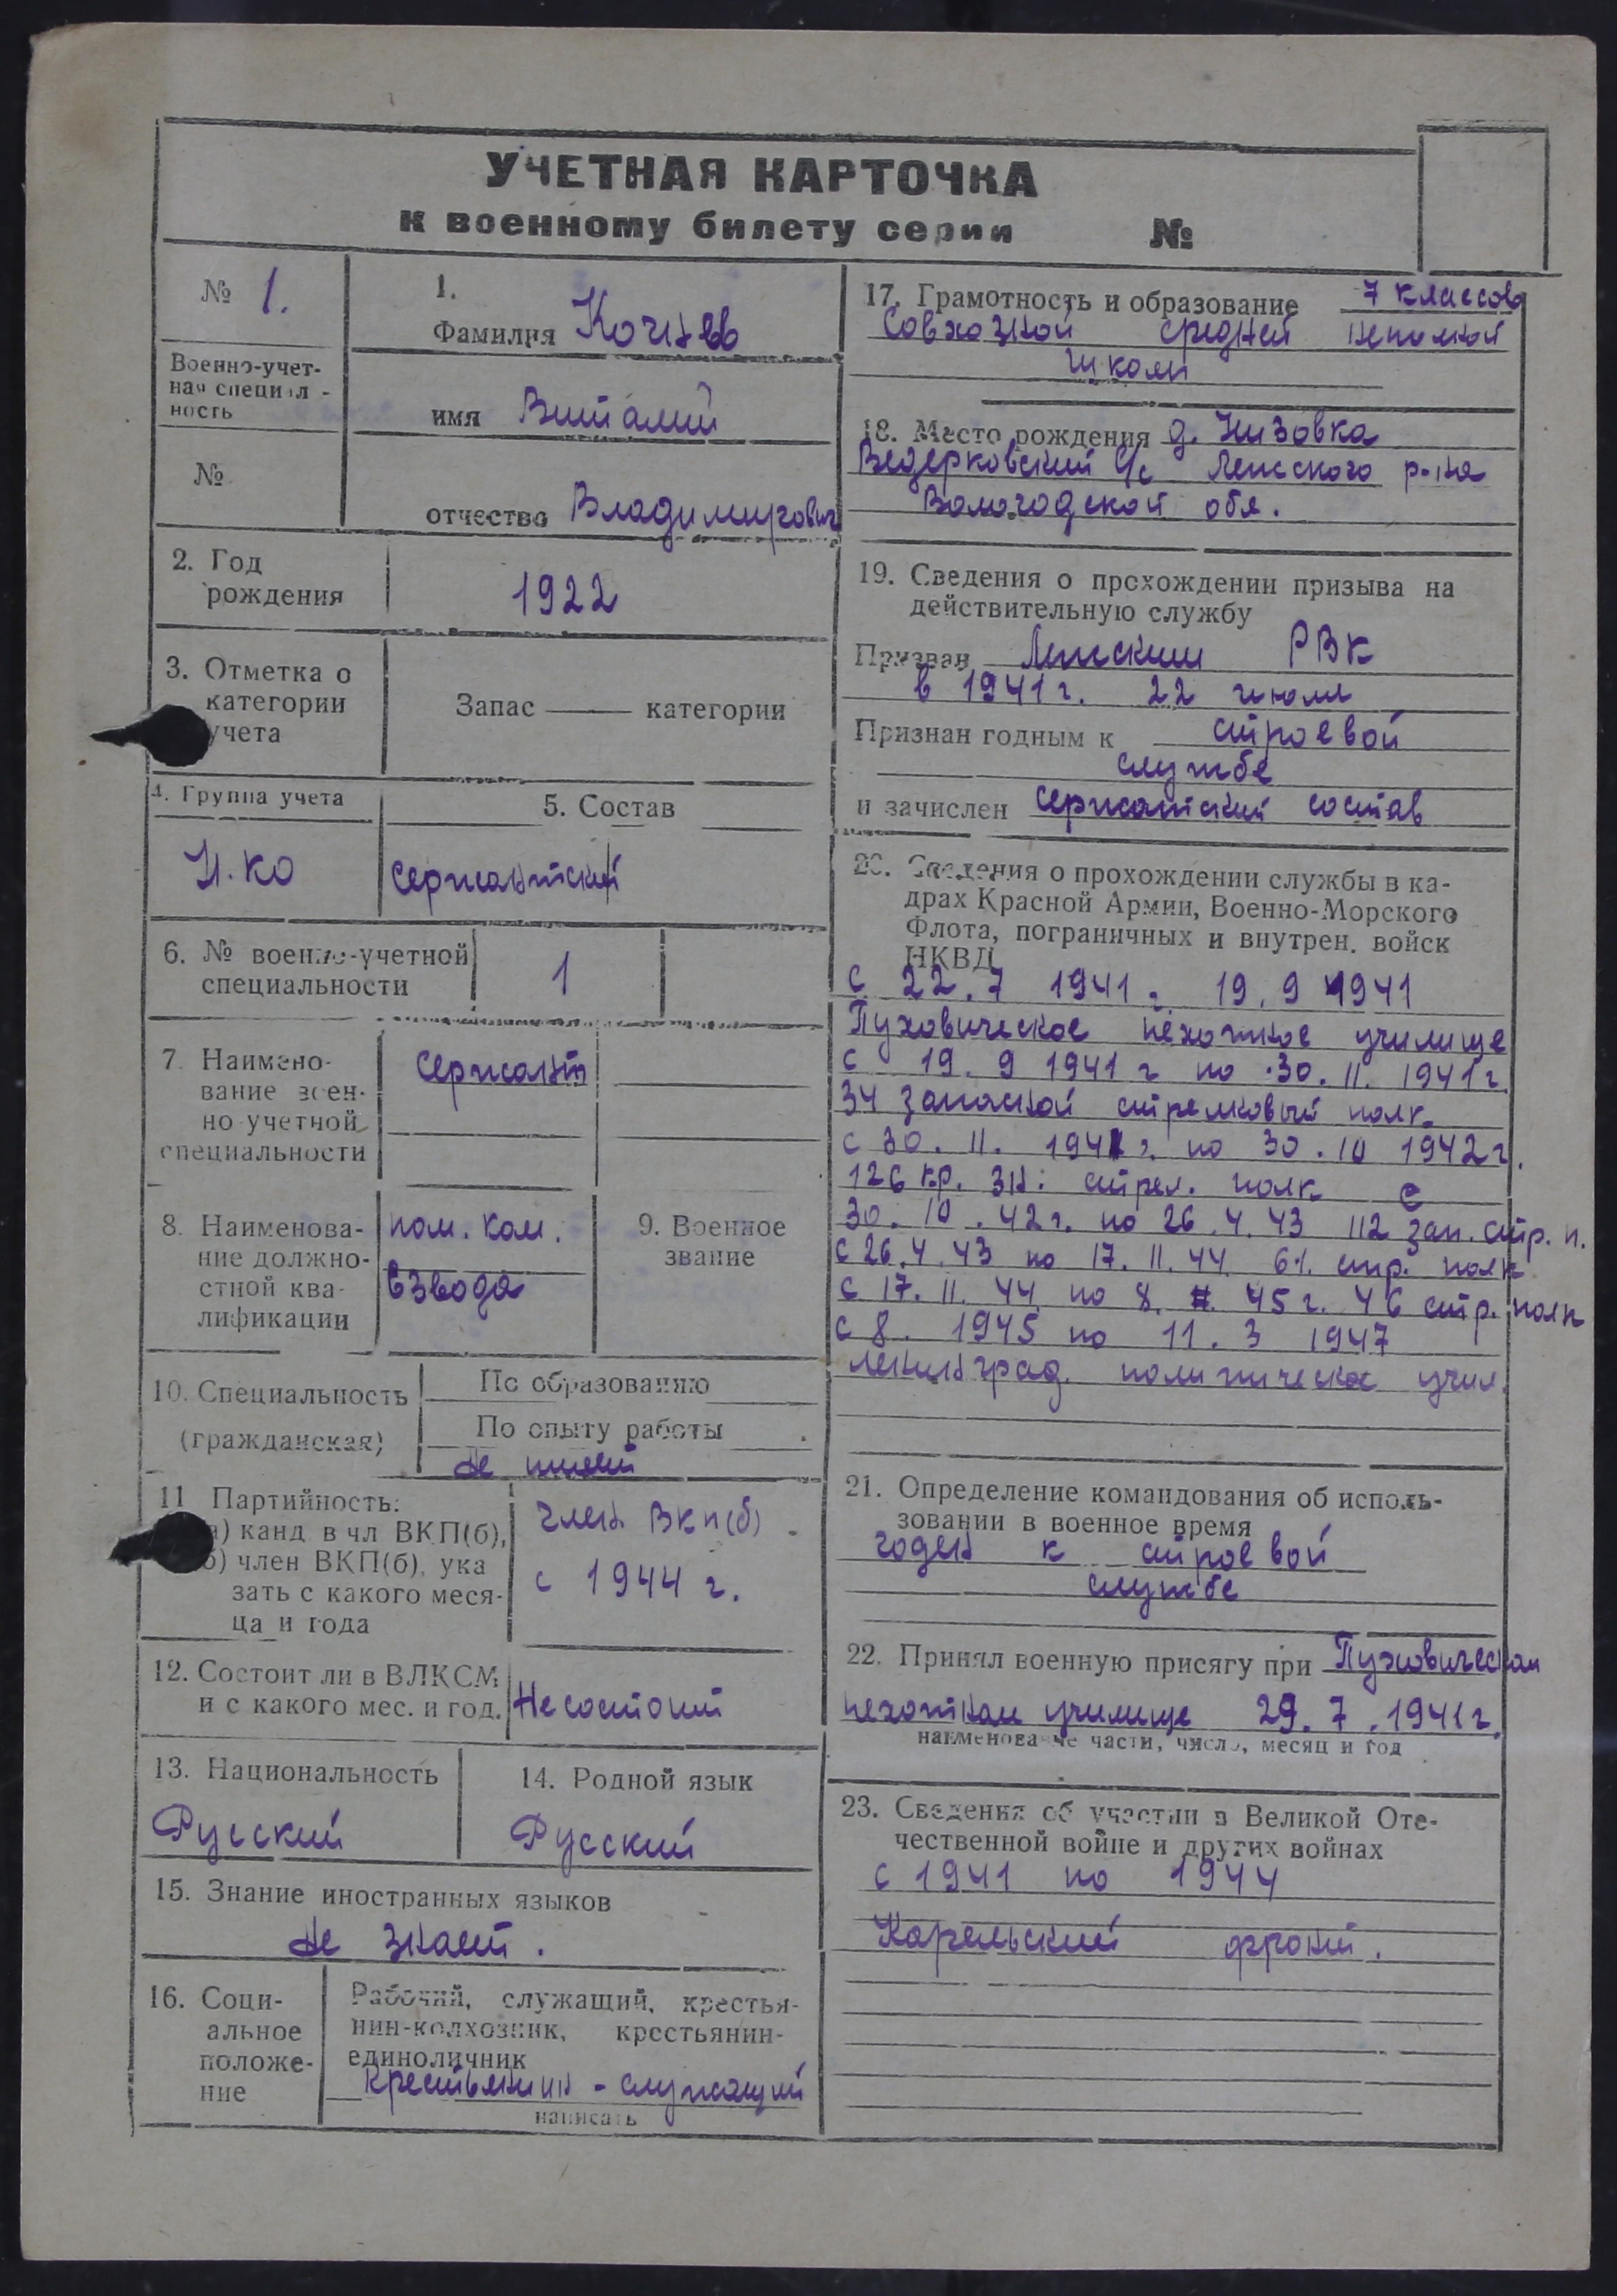 УЧЕТНАЯ КАРТОЧКА
к военному билету серии №
№ 1.
Военно-учет-
ная специаль-
ность
№
1.
Фамилия
имя Виталий
отчество Владимирович
2. Год
рождения
1922
3. Отметка о
категории
учета
Запас —— категории
4. Группа учета
Н.КО
5. Состав
Сержантский
6. № военно-учетной
специальности
1
7. Наимено-
вание воен-
но-учетной
специальности
Сержант
8. Наименова-
ние должно-
стной ква-
лификации
пом. ком.
взвода
9. Военное
звание
10. Специальность
(гражданская)
По образованию
По опыту работы
не имеет
11 Партийность:
а) канд в чл ВКП(б),
б) член ВКП(б), ука
зать с какого меся-
ца и года
член ВКП(б)
с 1944 г.
12. Состоит ли в ВЛКСМ
и с какого мес. и год.
Не состоит
13. Национальность
Русский
14. Родной язык
Русский
15. Знание иностранных языков
не знает.
16. Соци-
альное
положе-
ние
Рабочий, служащий, крестья-
нин-колхозник, крестьянин-
единоличник
крестьянин - служащий
написать
17. Грамотность и образование 7 классов
Совхозной средней неполной
школы
18. Место рождения д. Низовка
Ведерковский с/с Ленского р-на
Вологодской обл.
19. Сведения о прохождении призыва на
действительную службу
Призван Ленским РВК
в 1941 г. 22 июля
Признан годным к строевой
службе
и зачислен сержантский состав
20. Сведения о прохождении службы в ка-
драх Красной Армии, Военно-Морского
Флота, пограничных и внутрен. войск
НКВД
С 22.7 1941. 19.9 1941
Пуховическое пехотное училище
с 19.9 1941 г по 30.11.1941 г.
34 запасной стрелковый полк.
с 30.11.1941 г. по 30.10 1942 г.
126 кр. зн: стрел. полк с
30.10.42 г. по 26.4.43 112 зап. стр. п.
с 26.4.43 по 17.11.44 61. стр. полк
с 17.11.44 по 8. 45 г. 46 стр. полк
с 8. 1945 по 11.3 1947
ленинград. политическое учил.
21. Определение командования об исполь-
зовании в военное время
годен к строевой
службе
22. Принял военную присягу при Пуховическом
пехотном училище 29.7.1941 г.
наименование части, число, месяц и год
23. Сведения об участии в Великой Оте-
чественной войне и других войнах
с 1941 по 1944
Карельский фронт.